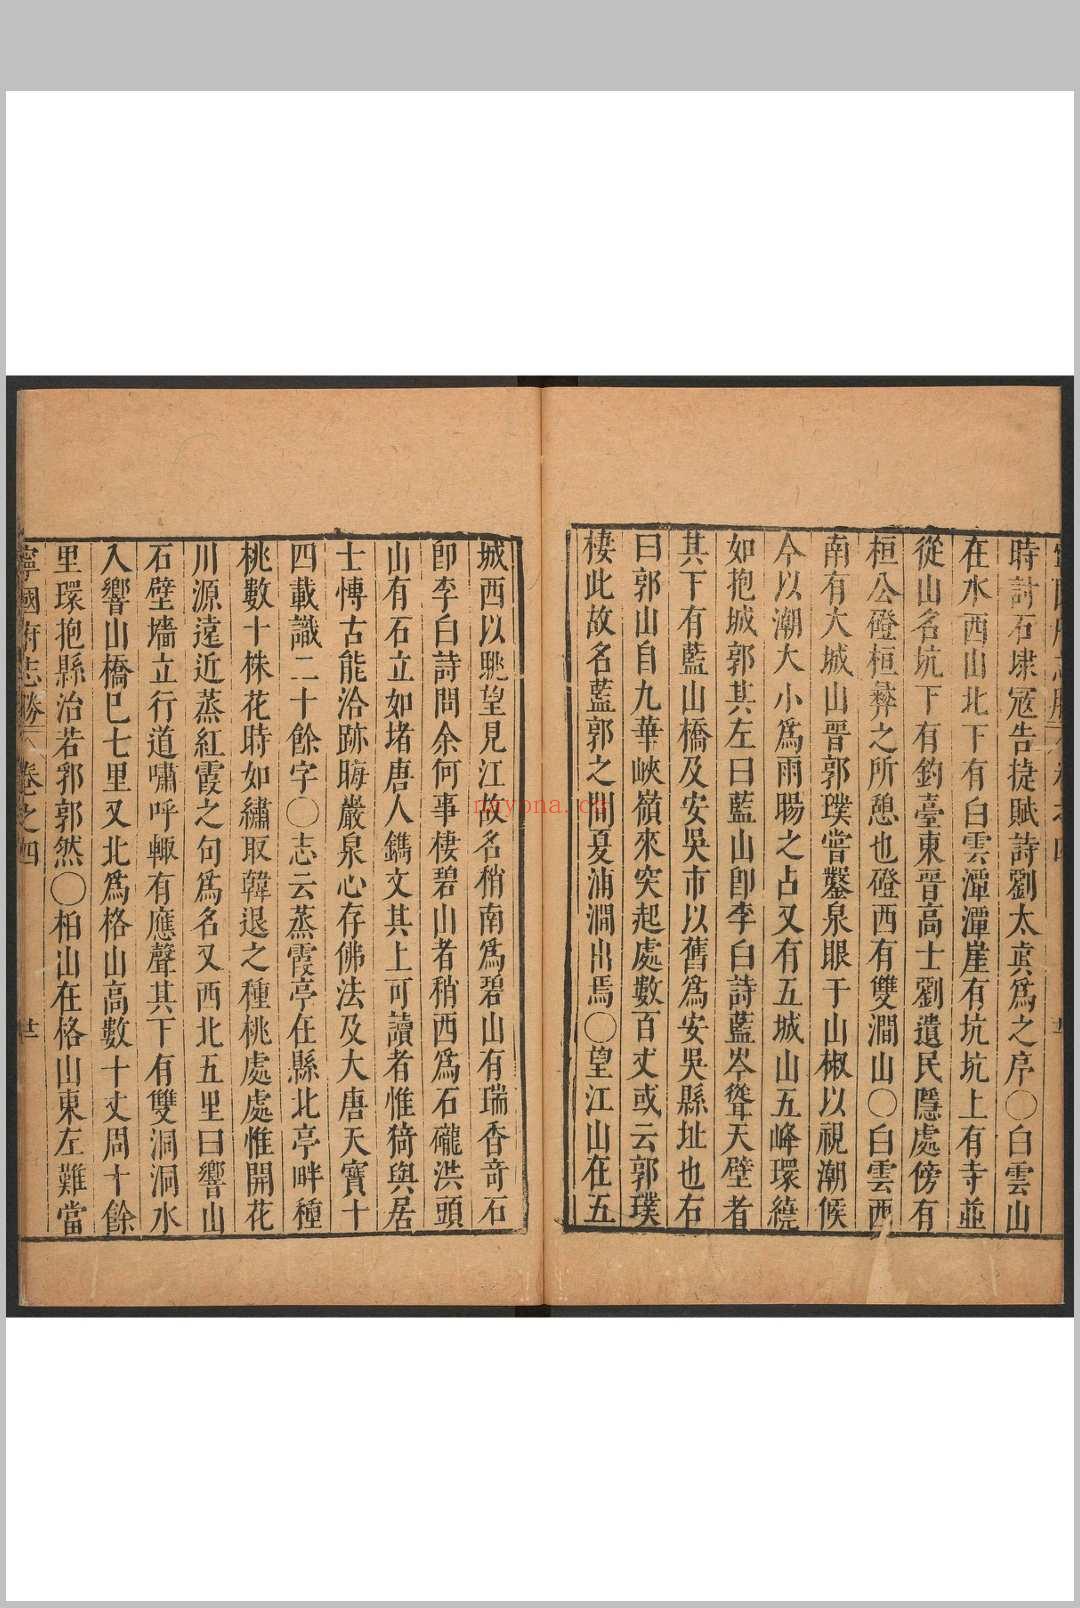 時討石埭寇告捷賦詩劉太真爲之序〇白雲山
在水西山北下有白雲潭潭崖有坑坑上有寺並
從山名坑下有釣臺東晉高士劉遺民隱處傍有
桓公磴桓彝之所憩也磴西有雙澗山〇白雲西
南有大城山晉郭璞嘗鑿泉眼于山椒以視潮候
今以潮大小爲雨暘之占又有五城山五峰環繞
如抱城郭其左曰藍山卽李白詩藍岑聳天壁者
其下有藍山橋及安吳市以舊爲安吳縣址也右
曰郭山自九華峽嶺來突起處數百丈或云郭璞
棲此故名藍郭之間夏浦澗出焉〇望江山在五
城西以眺望見江故名稍南爲碧山有瑞香竒石
卽李白詩問余何事棲碧山者稍西爲石礲洪頭
山有石立如堵唐人鐫文其上可讀者惟猗與居
士慱古能洽跡晦巖泉心存佛法及大唐天寶十
四載識二十餘字〇志云蒸霞亭在縣北亭畔種
桃數十株花時如繡取韓退之種桃處處惟開花
川源遠近蒸紅霞之句爲名又西北五里曰響山
石壁墻立行道嘯呼輙有應聲其下有雙洞洞水
入響山橋巳七里又北爲格山高數十丈周十餘
里環抱縣治若郛郭然〇柏山在格山東左難當
寧國府志勝 卷之四 廿